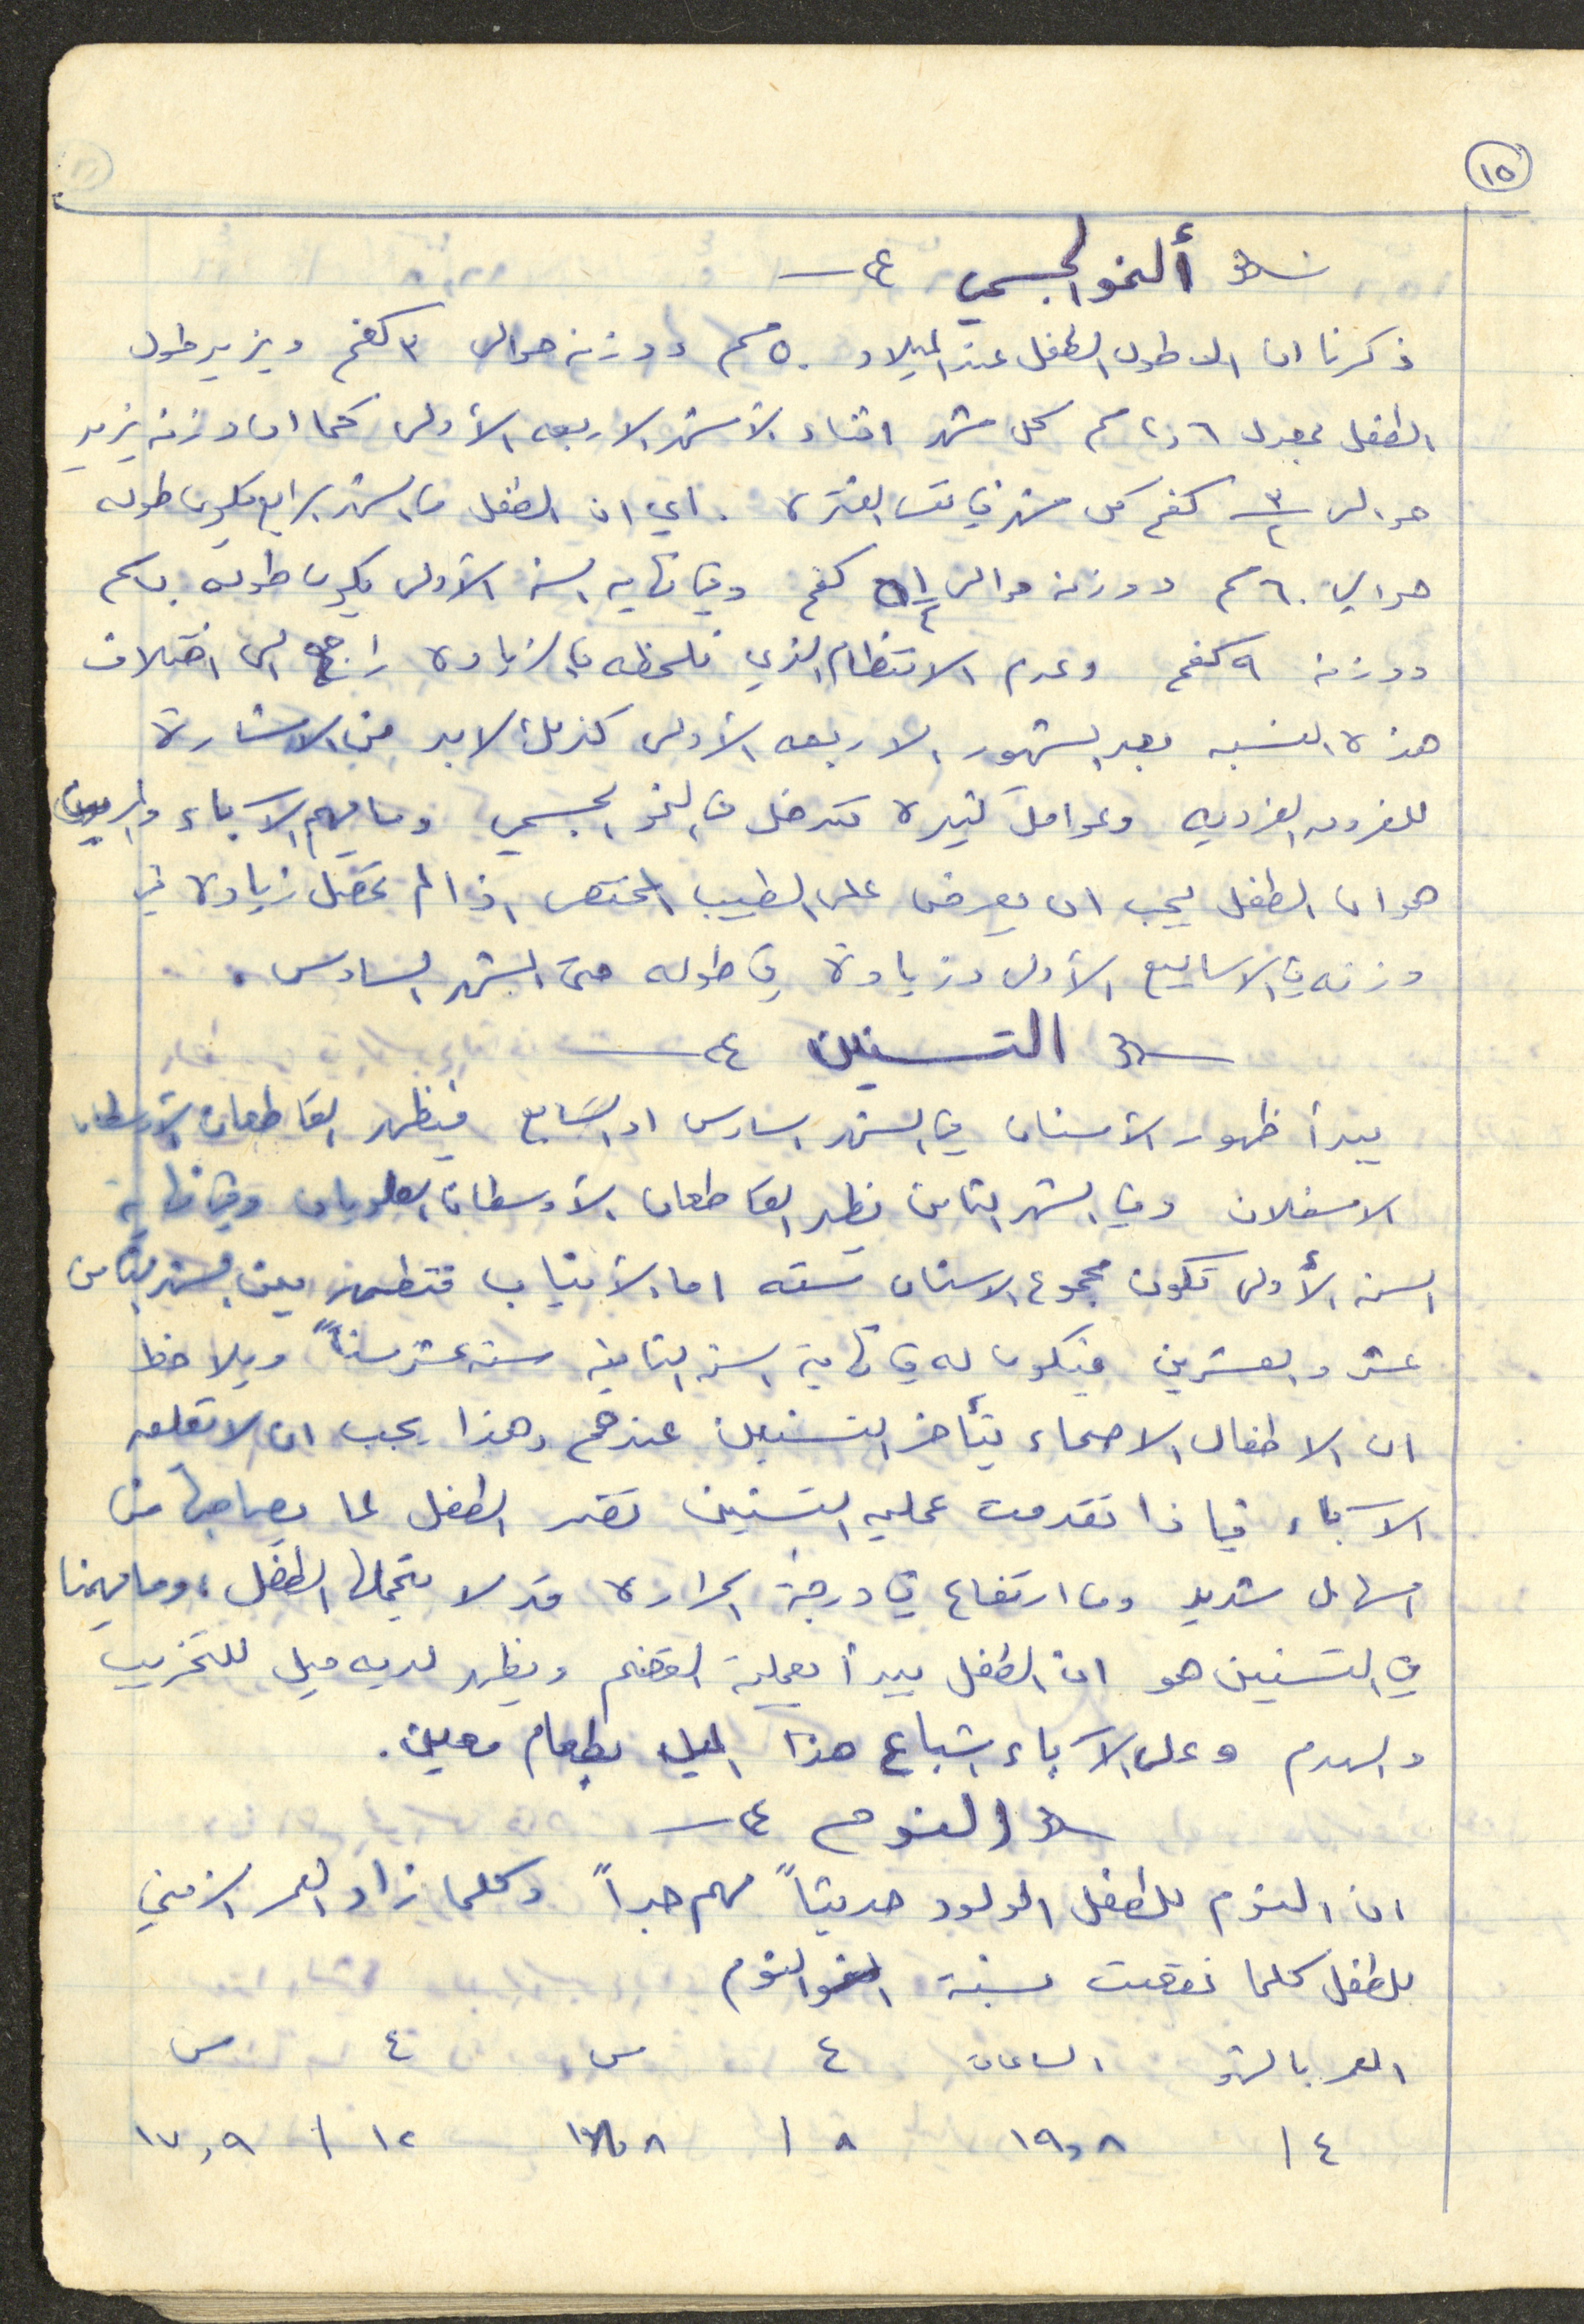 ١٥
ألنمو الجسمي
ذكرنا ان الـ طول الطفل عند الميلاد ٥٠ سم ووزنه حوالى ٣ كغم ويزيد طول
الطفل بمعدل ٢٫٦ سم كل شهر اثناء الأشهر الاربعه الأولى كما ان وزنه يزيد
حوالى ٣/٢ كغم كل شهر في تلك الفتره . اي ان الطفل في الشهر الرابع يكون طوله
حوالي ٦٠ سم ووزنه حوالى ٥ ١/٤ كغم وفي نهايه السنه الأولى يكون طوله سم
ووزنه ٩ كغم وعدم الانتظام الذي نلحظه في الزياده راجع الى اختلاف
هذه النسبه بعد الشهور الاربعه الأولى كذلك لابد من الاشارة
للفروق الفرديه وعوامل كثيره تتدخل في النمو الجسمي وما يهم الآباء والمربين
هو ان الطفل يجب ان يعرض على الطبيب المختص اذا لم تحصل زياده في
وزنه في الاسابيع الأولى وزيادة في طوله حتى الشهر السادس .
التسنين
يبدأ ظهور الأسنان في الشهر السادس او السابع فيظهر القاطعان الأوسطان
الاسفلان وفي الشهر الثامن يظهر القاطعان الأوسطان العلويان وفي نهاية
السنه الأولى تكون مجموع الاسنان سته اما الأنياب فتظهر بين الشهر الثامن
عشر والعشرين فيكون له في نهاية السنه الثانيه سته عشر سناً ويلاحظ
ان الاطفال الاصحاء يتأخر التسنين عندهم وهذا يجب ان لا تقلقه
الآباء فإذا تقدمت عمليه التسنين تضر الطفل لما يصاحبها من
اسهال شديد وما ارتفاع في درجة الحراره قد لا يتحملها الطفل ، وما يهمنا
في التسنين هو ان الطفل يبدأ بعملية القضم ويظهر لديه ميل للتخريب
والهدم وعلى الآباء اشباع هذا الميل بطعام معين .
النوم
ان النوم للطفل المولود حديثاً مهم جداً وكلما زاد العمر الزمني
للطفل كلما نقصت نسبة النوم
العمر بالشهر الساعات ع س ع س
٤ / ١٩٫٨ ٨ / ١٢ / ١٧٫٩